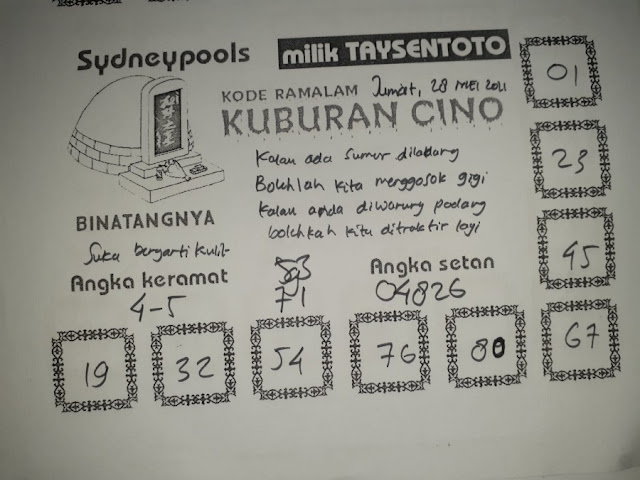 Sydneypools
milik TAYSENTOTO
KODE RAMALAM Jumat, 28 MEI 2021
KUBURAN CINO
Kalau ada sumur diladang
Bolehlah kita menggosok gigi
Kalau anda diwarung padang
bolehkah kita ditraktir lagi
BINATANGNYA
Suka berganti kulit
Angka keramat
4-5
71
Angka setan
04826
01
23
45
67
19
32
54
76
80